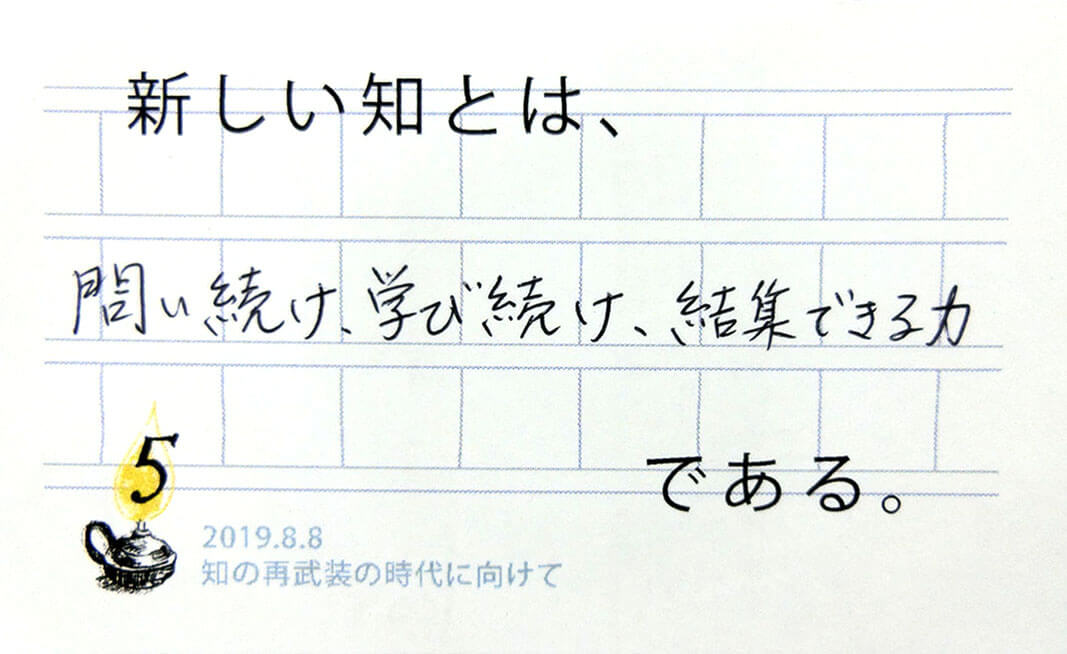 新しい知とは、
問い続け、学び続け、結集できる力
である。
5
2019.8.8
知の再武装の時代に向けて